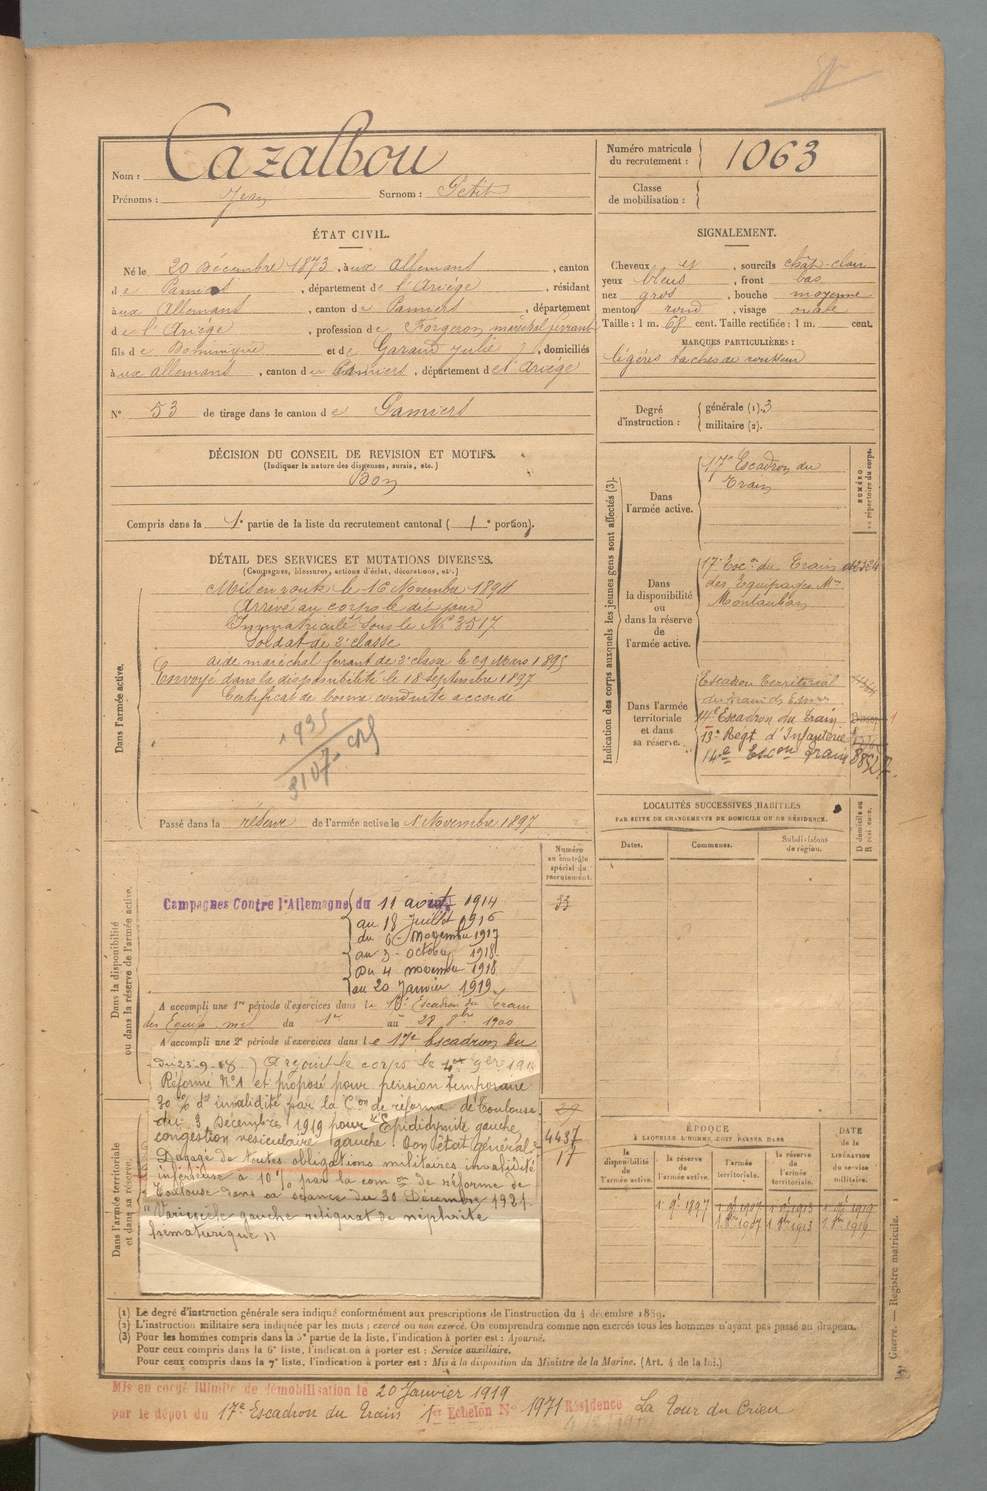 Nom : Cazalbou
Prénoms : Jean Surnom : Petit
Numéro matricule du recrutement : 1063
Classe de mobilisation :
ÉTAT CIVIL.
Né le 20 Décembre 1873, à ux Allemans, canton
d e Pamiers, département d e l'Ariège, résidant
à ux Allemans, canton d e Pamiers, département
d e l'Ariège, profession d e Forgeron maréchal ferrant
fils d e Dominique et d e Garaud Julie, domiciliés
à ux allemans, canton d e Pamiers, département d e l'Ariège
N° 53 de tirage dans le canton d e Pamiers
SIGNALEMENT.
Cheveux et, sourcils chât-clair
yeux bleus, front bas
nez gros, bouche moyenne
menton rond, visage ovale
Taille : 1 m. 68 cent. Taille rectifiée : 1 m. cent.
MARQUES PARTICULIÈRES :
légères taches de rousseur
Degré d'instruction : générale (1). 3
militaire (2).
DÉCISION DU CONSEIL DE REVISION ET MOTIFS.
(Indiquer la nature des dispenses, sursis, etc.)
Bon
Compris dans la 1e partie de la liste du recrutement cantonal ( 1e portion).
DÉTAIL DES SERVICES ET MUTATIONS DIVERSES.
(Campagnes, blessures, actions d'éclat, décorations, etc.)
Dans l'armée active.
Mis en route le 16 Novembre 1894
Arrivé au corps le dit jour
Immatriculé sous le N° 3517
Soldat de 2e classe
aide maréchal ferrant de 2e classe le 29 Mars 1895
Envoyé dans la disponibilité le 18 septembre 1897
Certificat de bonne conduite accordé
Passé dans la réserve de l'armée active le 1 Novembre 1897
Indication des corps auxquels les jeunes gens sont affectés (3).
NUMÉRO au répertoire du corps.
Dans l'armée active.
17e Escadron du
Train
Dans la disponibilité ou dans la réserve de l'armée active.
17e Escon du Train
des Equipages Mres
Montauban
Dans l'armée territoriale et dans sa réserve.
Escadron territorial
du train des
14e Escadron du Train
13e Regt d'Infanterie
14e Escon Train
LOCALITÉS SUCCESSIVES HABITÉES
PAR SUITE DE CHANGEMENTS DE DOMICILE OU DE RÉSIDENCE.
Dates. Communes. Subdivisions de région. D domicile ou R résidence.
Numéro au contrôle spécial du recrutement.
33
Dans la disponibilité ou dans la réserve de l'armée active.
Campagnes Contre l'Allemagne du 11 août 1914
au 18 Juillet 1916
du 6 Novembre 1917
au 3 octobre 1918
Du 4 novembre 1918
au 20 Janvier 1919
A accompli une 1re période d'exercices dans le Escadron du Train
des Equip. mil du 1er au 28 1900
A accompli une 2e période d'exercices dans le 17e Escadron du
Réformé N°1 et proposé pour pension temporaire
30 % d'invalidité par la Con de réforme de Toulouse
du 3 Décembre 1919 pour Epididymite gauche,
congestion vésiculaire gauche. bon état général
Dégagé de toutes obligations militaires invalidité
inférieure à 10 % par la comon de réforme de
Toulouse dans sa séance du 30 Décembre 1921.
"Varicocèle gauche reliquat de néphrite
hématurique"
4437
17
Dans l'armée territoriale et dans sa réserve.
ÉPOQUE
À LAQUELLE L'HOMME DOIT PASSER DANS
la disponibilité de l'armée active. la réserve de l'armée active. l'armée territoriale. la réserve de l'armée territoriale.
DATE de la LIBÉRATION du service militaire.
(1) Le degré d'instruction générale sera indiqué conformément aux prescriptions de l'instruction du 4 décembre 1889.
(2) L'instruction militaire sera indiquée par les mots : exercé ou non exercé. On comprendra comme non exercés tous les hommes n'ayant pas passé au drapeau.
(3) Pour les hommes compris dans la 5e partie de la liste, l'indication à porter est : Ajourné.
Pour ceux compris dans la 6e liste, l'indication à porter est : Service auxiliaire.
Pour ceux compris dans la 7e liste, l'indication à porter est : Mis à la disposition du Ministre de la Marine. (Art. 4 de la loi.)
Guerre. — Registre matricule.
Mis en congé illimité de démobilisation le 20 Janvier 1919
par le dépôt du 17e Escadron du Train 1er Echelon N° 1971 Résidence La Tour du Crieu